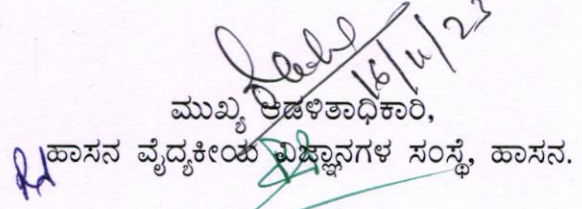 16/11/23
ಮುಖ್ಯ ಆಡಳಿತಾಧಿಕಾರಿ,
ಹಾಸನ ವೈದ್ಯಕೀಯ ವಿಜ್ಞಾನಗಳ ಸಂಸ್ಥೆ, ಹಾಸನ.